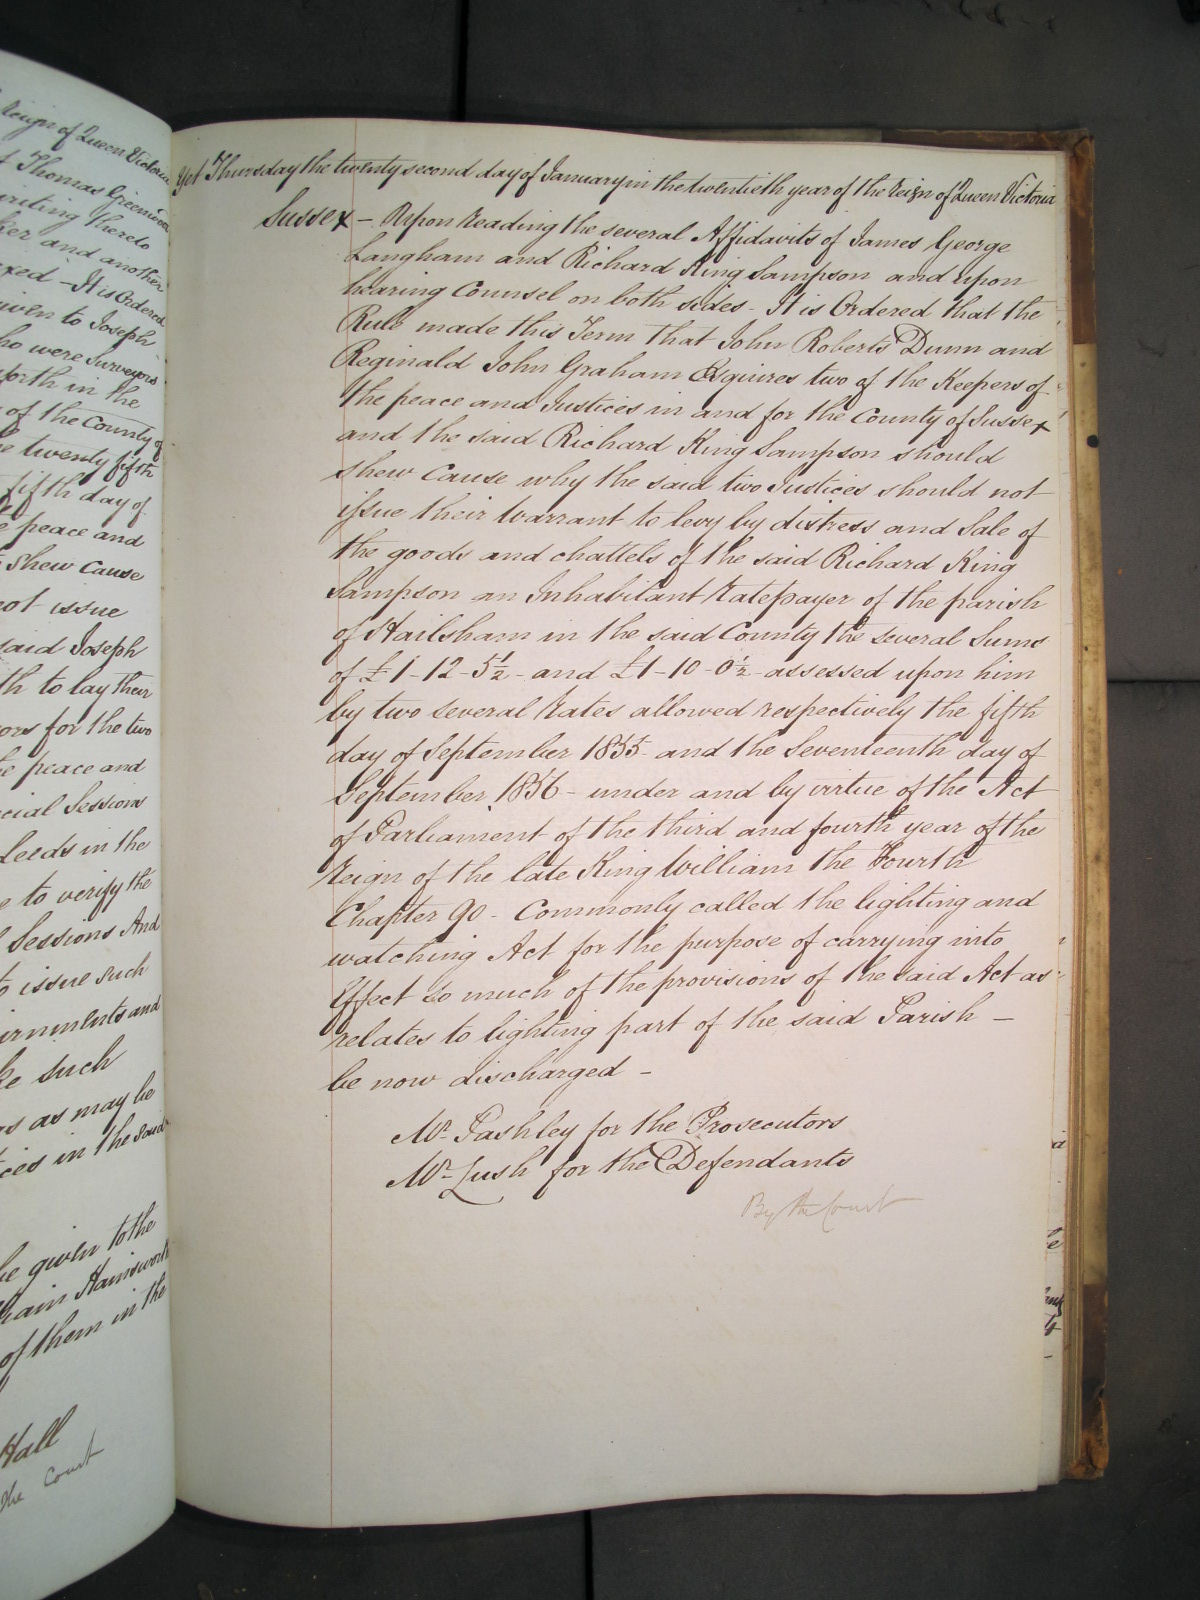 Reign of Queen Victoria
Thomas Greenwood
writing thereto
and another
It is Ordered
given to Joseph
who were Surveyors
forth in the
of the County of
twenty fifth
fifth day of
peace and
Shew Cause
not issue
said Joseph
to lay their
for the two
peace and
Sessions
Leeds in the
to verify the
Sessions And
to issue such
and
such
as may be
in the said
be given to the
Hainsworth
of them in the
Hall
the Court
Yet Thursday the twenty second day of January in the twentieth year of the Reign of Queen Victoria
Sussex – Upon reading the several Affidavits of James George
Langham and Richard King Sampson and upon
hearing Counsel on both sides - It is Ordered that the
Rule made this Term that John Roberts Dunn and
Reginald John Graham Esquires two of the Keepers of
the peace and Justices in and for the County of Sussex
and the said Richard King Sampson should
shew cause why the said two Justices should not
issue their Warrant to levy by distress and Sale of
the goods and chattels of the said Richard King
Sampson an Inhabitant Ratepayer of the parish
of Hailsham in the said County the several Sums
of £1-12-5½ - and £1-10-0½ assessed upon him
by two several Rates allowed respectively the fifth
day of September 1855 and the Seventeenth day of
September 1856 - under and by virtue of the Act
of Parliament of the third and fourth year of the
Reign of the late King William the Fourth
Chapter 90 - Commonly called the lighting and
watching Act for the purpose of carrying into
Effect so much of the provisions of the said Act as
relates to lighting part of the said Parish –
be now discharged –
Mr. Pashley for the Prosecutors
Mr. Lush for the Defendants
By the Court